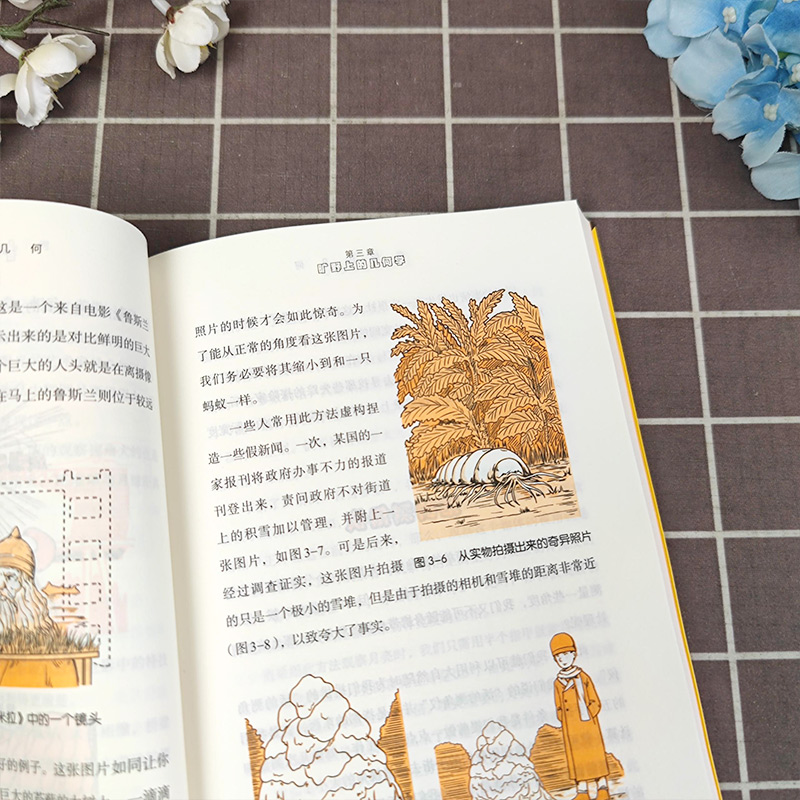 几 何
这是一个来自电影《鲁斯兰
示出来的是对比鲜明的巨大
个巨大的人头就是在离摄像
在马上的鲁斯兰则位于较远
米拉》中的一个镜头
子的例子。这张图片如同让你
第三章
旷野上的几何学
照片的时候才会如此惊奇。为
了能从正常的角度看这张图片，
我们务必要将其缩小到和一只
蚂蚁一样。
一些人常用此方法虚构捏
造一些假新闻。一次，某国的一
家报刊将政府办事不力的报道
刊登出来，责问政府不对街道
上的积雪加以管理，并附上一
张图片，如图3-7。可是后来，
经过调查证实，这张图片拍摄
图 3-6 从实物拍摄出来的奇异照片
的只是一个极小的雪堆，但是由于拍摄的相机和雪堆的距离非常近
（图3-8），以致夸大了事实。